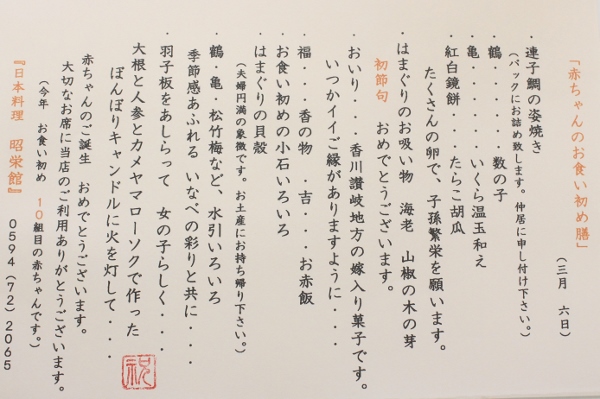 「赤ちゃんのお食い初め膳」
（三月　六日）
・連子鯛の姿焼き
（パックにお詰め致します。仲居に申し付け下さい。）
・鶴・・・・・数の子
・亀・・・・・いくら温玉和え
・紅白鏡餅・・・・たらこ胡瓜
たくさんの卵で、子孫繁栄を願います。
・はまぐりのお吸い物　海老　山椒の木の芽
初節句　おめでとうございます。
・おいり・・・香川讃岐地方の嫁入り菓子です。
いつかイイご縁がありますように・・・・
・福・・・香の物　・吉・・・お赤飯
・お食い初めの小石いろいろ
・はまぐりの貝殻
（夫婦円満の象徴です。お土産にお持ち帰り下さい。）
・鶴・亀・松竹梅など、水引いろいろ
季節感あふれる　いなべの彩りと共に・・・・
・羽子板をあしらって　女の子らしく・・・・
大根と人参とカメヤマローソクで作った
ぼんぼりキャンドルに火を灯して・・・・
赤ちゃんのご誕生　おめでとうございます。
大切なお席に当店のご利用ありがとうございます。
（今年　お食い初め　１０組目の赤ちゃんです。）
『日本料理　昭栄館』　０５９４（７２）２０６５
祝